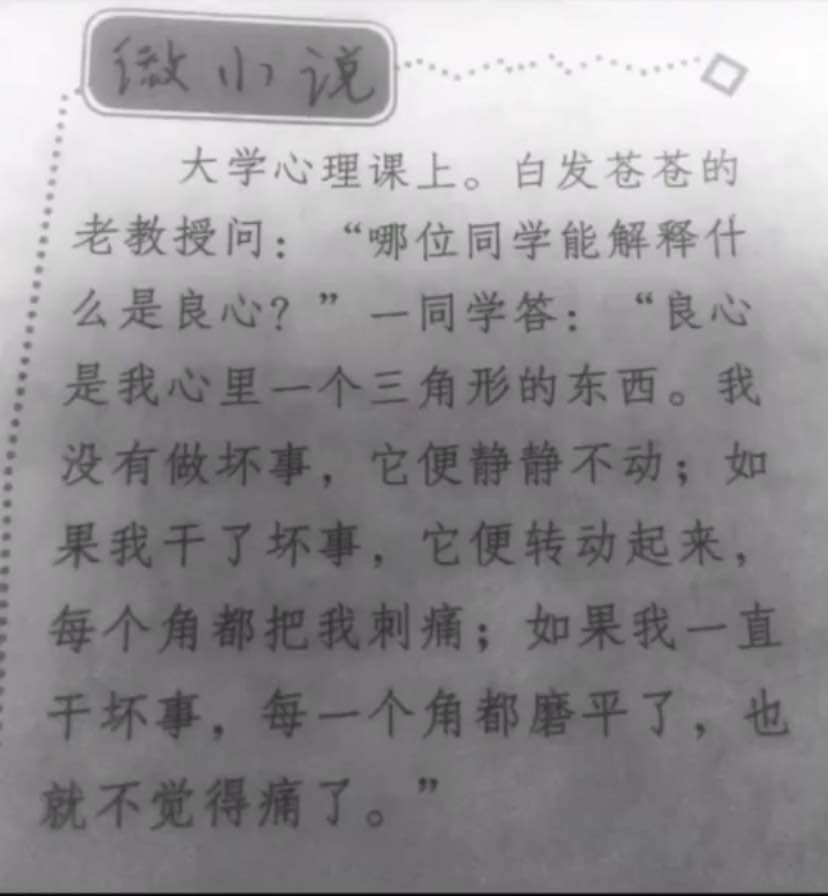 微小说
大学心理课上。白发苍苍的
老教授问：“哪位同学能解释什
么是良心？”一同学答：“良心
是我心里一个三角形的东西。我
没有做坏事，它便静静不动；如
果我干了坏事，它便转动起来，
每个角都把我刺痛；如果我一直
干坏事，每一个角都磨平了，也
就不觉得痛了。”